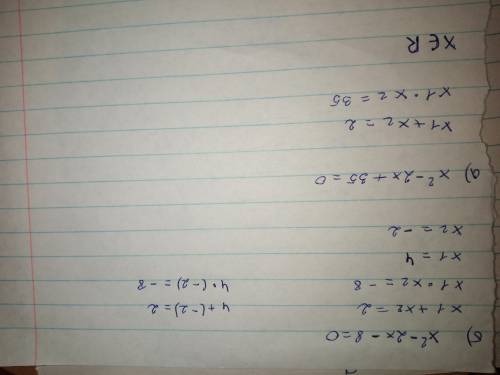 б) x² - 2x - 8 = 0
x1 + x2 = 2    4 + (-2) = 2
x1 • x2 = -8    4 • (-2) = -8
x1 = 4
x2 = -2
x² - 2x + 35 = 0
x1 + x2 = 2
x1 • x2 = 35
x ∈ R